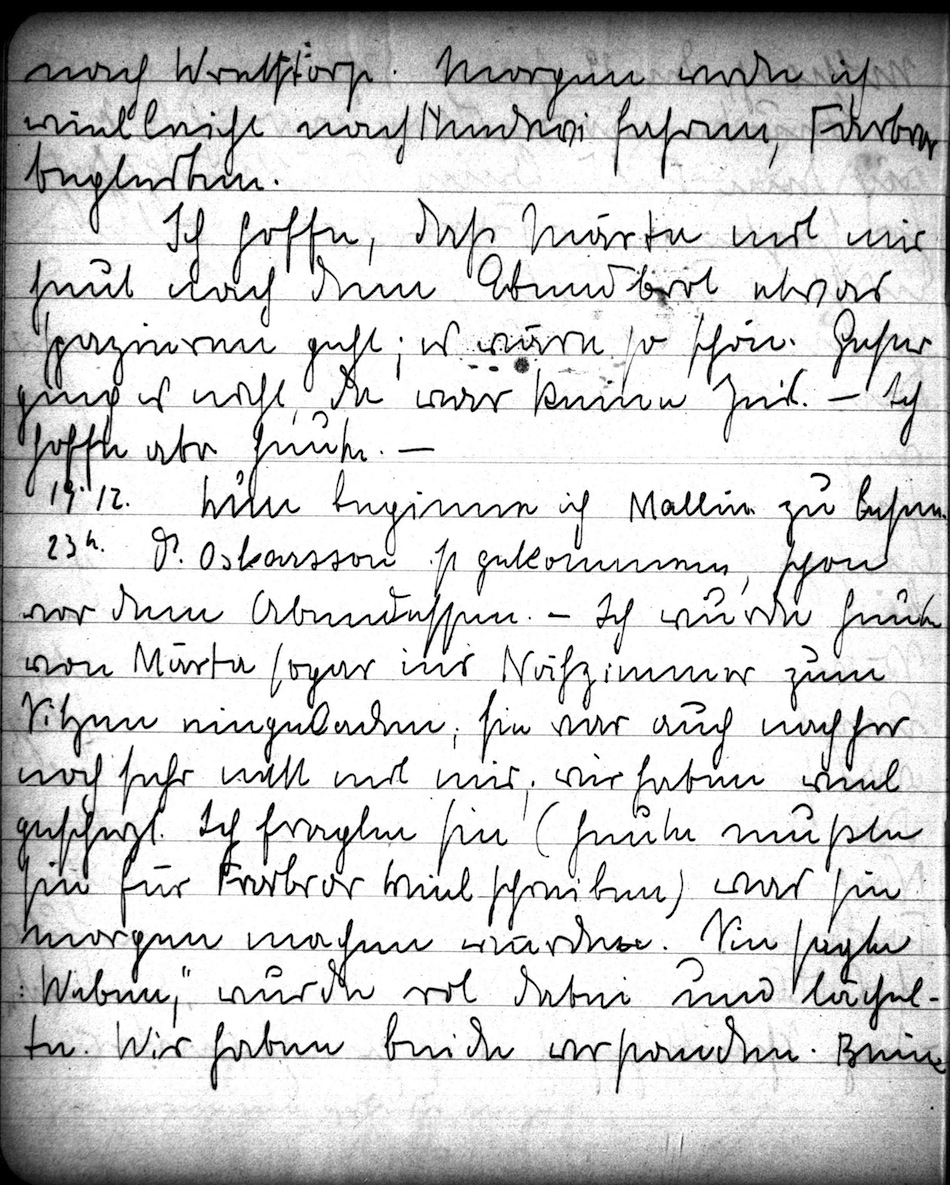 nach Wrettstorp. Morgen werde ich
vielleicht nach fahren, Farbror
begleiten.
Ich hoffe, daß Märta mit mir
heut nach dem Abendbrot etwas
spazieren geht; es wäre so schön. Gestern
ging es nicht, da war keine Zeit. – Ich
hoffe aber heute. –
19.12. Nun beginne ich Mallin zu
23 h. D. Oskarsson ist gekommen, schon
vor dem Abendessen. – Ich wurde heute
von Märta sogar ins Nähzimmer zum
Sitzen eingeladen; sie war auch nachher
noch sehr nett mit mir; wir haben viel
gescherzt. Ich fragte sie (heute mußte
sie für Farbror viel schreiben) was sie
morgen machen würde. Sie sagte
: "Weben," wurde rot dabei und lächel-
te. Wir haben beide verstanden. Beim